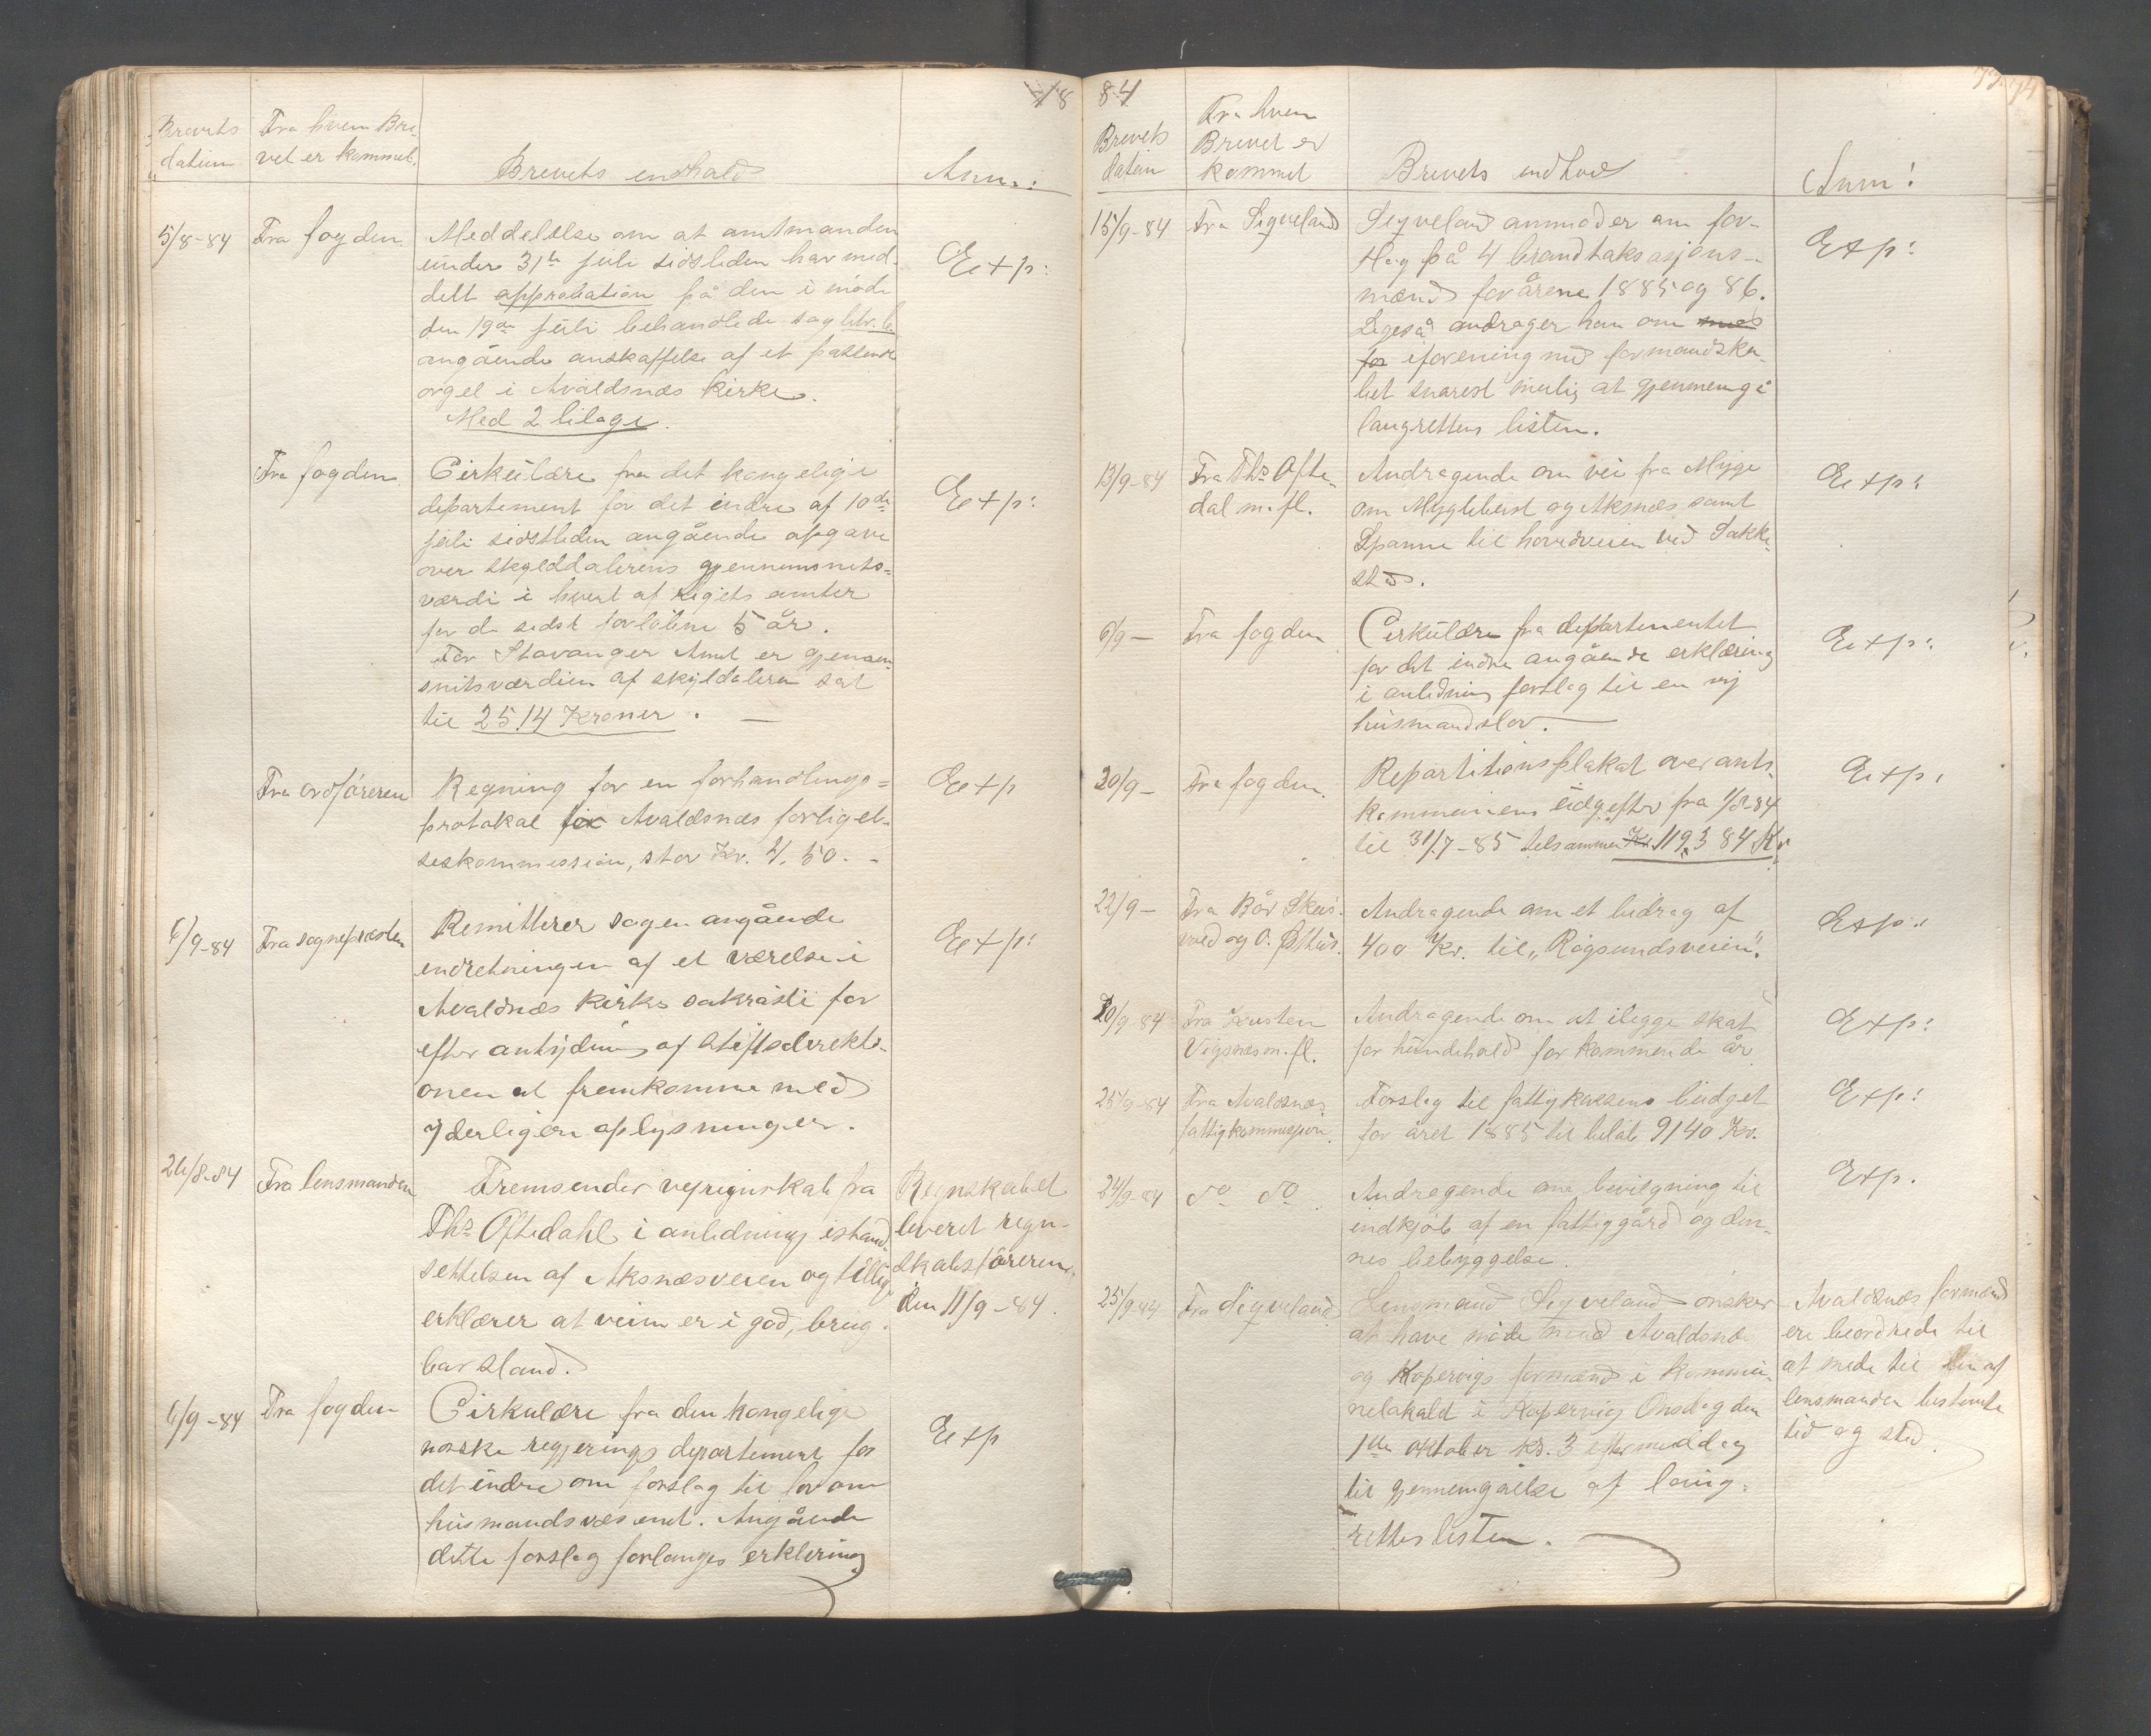 18
Brevets
datum
Fra hvem Bre-
vet er kommet.
Brevets endhold
Anm.:
5/8-84
Fra fogden
Meddelelse om at amtmanden
under 31te juli sidstleden har med-
delt approbation på den i møde
den 19de juli behandlede sag litr. b.
angående anskaffelse af et passende
orgel i Avaldsnæs Kirke.
Med 2 bilage.
Exp:
Fra fogden
Cirkulære fra det kongelige
departement for det indre af 10de
juli sidstleden angående opgave
over skylddalerens gjennemsnits=
værdi i hvert af rigets amter
for de sidst forløbne 5 år.
For Stavanger Amt er gjennem
snitsværdien af skyldaleren sat
til 2514 Kroner. —
Exp:
Fra ordføreren
Regning for en forhandlings=
protokol for Avaldsnæs forligel-
seskommission, stor Kr. 4,50.-
Exp
6/9-84
Fra sognepræsten
Remitterer sagen angående
indretningen af et værelse i
Avaldnæs Kirkes sakristi for
efter antydning af Stiftsdirekti-
onen at fremkomme med
yderligere oplysninger.
Exp:
26/8-84
Fra lensmanden
Fremsender vejregnskab fra
Ths Oftedahl i anledning istand-
settelsen af Aksnæsveien og tillige
erklærer at veien er i god, brug-
bar stand.
Regnskabet
leveret regn-
skabsføreren
den 11/9-84.
6/9-84
Fra fogden
Cirkulære fra den kongelige
norske regjerings departement for
det indre om forslag til lov om
husmandsvæsenet. Angående
dette forslag forlanges erklæring
Exp
84
74
Brevets
datum
Fra hvem
Brevet er
kommet
Brevets indhold
Anm:
15/9-84
Fra Sigveland
Sigveland anmoder om for-
slag på 4 brandtaksasjons-
mænd for årene 1885 og 86.
Ligeså andrager han om med
for iforening med formandska-
bet snarest mulig at gjennemgå
laugrettens listen.
Exp:
13/9-84
Fra Ths Ofte-
dal m.fl.
Andragende om vei fra Myge
om Myglebust og Aksnæs samt
Spanne til hovedveien ved Sakke-
stad.
Exp:
6/9 —
Fra fogden
Cirkulære fra departementet
for det indre angående erklæring
i anledning forslag til en ny
husmandslov.
Exp:
20/9 —
Fra fogden.
Repartitionsplakat over amts-
kommunens udgifter fra 1/8-84
til 31/7-85 tilsammen Kr. 119,384 Kr
Exp:
22/9 —
Fra Bår Skeis-
vold og O. Østhus.
Andragende om et bidrag af
400 Kr. til „Røgsundsveien".
Exp:
20/9-84
Fra Kristen
Vigsnæs m.fl.
Andragende om at ilegge skat
for hundehold for kommende år
Exp:
25/9-84
Fra Avaldsnæs
fattigkommission.
Forslag til fattigkassens budget
for året 1885 til beløb 9140 Kr.
Exp:
24/9-84
do do
Andragende om bevilgning til
indkjøb af en fattiggård og den-
nes bebyggelse.
Exp.
25/9-84
Fra Sigveland
Lensmand Sigveland ønsker
at have møde med Avaldsnæs
og Kopervigs formænd i kommu-
nelokalet i Kopervig Onsdag den
1ste oktober kl. 3 eftermiddag
til gjennemgåelse af laug-
retteslisten.
Avaldsnæs formænd
ere beordrede til
at møde til den af
lensmanden bestemte
tid og sted.